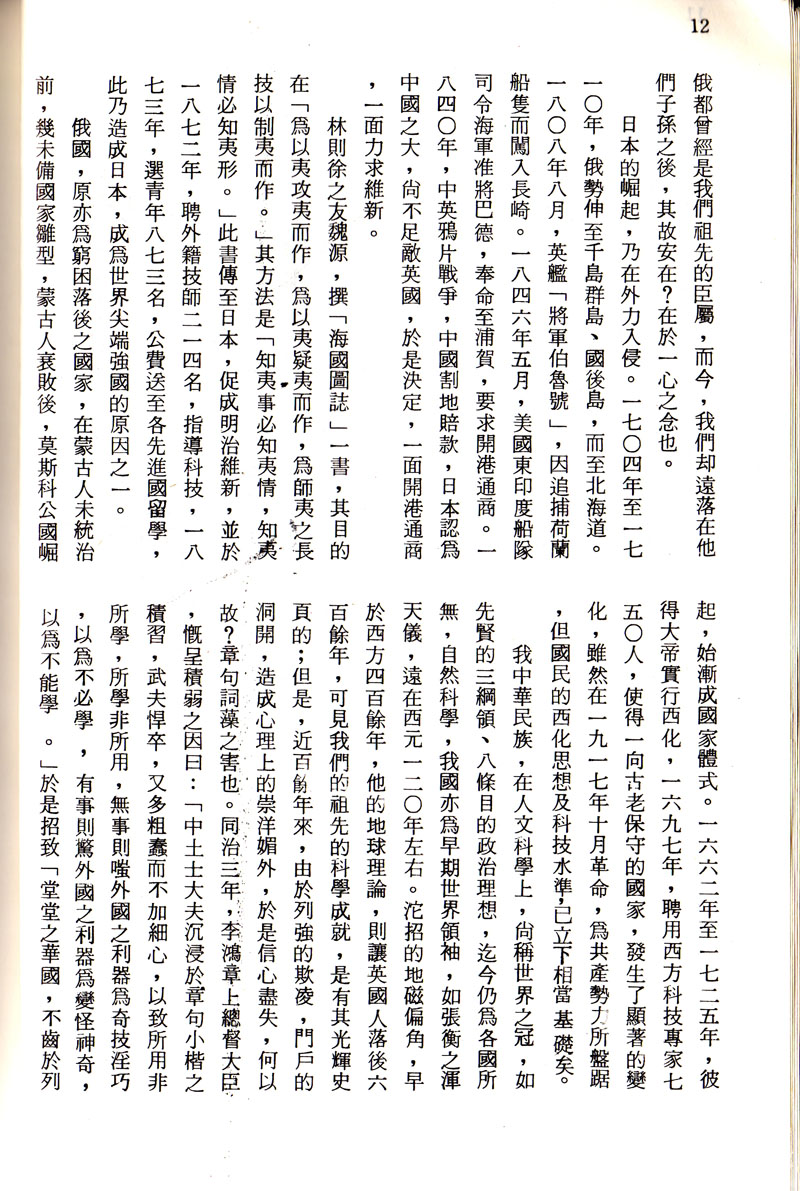 12
俄都曾經是我們祖先的臣屬，而今，我們却遠落在他
們子孫之後，其故安在？在於一心之念也。
日本的崛起，乃在外力入侵。一七〇四年至一七
一〇年，俄勢伸至千島群島、國後島，而至北海道。
一八〇八年八月，英艦「將軍伯魯號」，因追捕荷蘭
船隻而闖入長崎。一八四六年五月，美國東印度船隊
司令海軍准將巴德，奉命至浦賀，要求開港通商。一
八四〇年，中英鴉片戰爭，中國割地賠款，日本認爲
中國之大，尚不足敵英國，於是決定，一面開港通商
，一面力求維新。
林則徐之友魏源，撰「海國圖誌」一書，其目的
在「爲以夷攻夷而作，爲以夷疑夷而作，爲師夷之長
技以制夷而作。」其方法是「知夷事必知夷情，知夷
情必知夷形。」此書傳至日本，促成明治維新，並於
一八七二年，聘外籍技師二一四名，指導科技，一八
七三年，選青年八七三名，公費送至各先進國留學，
此乃造成日本，成爲世界尖端強國的原因之一。
俄國，原亦爲窮困落後之國家，在蒙古人未統治
前，幾未備國家雛型，蒙古人衰敗後，莫斯科公國崛
起，始漸成國家體式。一六六二年至一七二五年，彼
得大帝實行西化，一六九七年，聘用西方科技專家七
五〇人，使得一向古老保守的國家，發生了顯著的變
化，雖然在一九一七年十月革命，爲共產勢力所盤踞
，但國民的西化思想及科技水準，已立下相當基礎矣。
我中華民族，在人文科學上，尚稱世界之冠，如
先賢的三綱領、八條目的政治理想，迄今仍爲各國所
無，自然科學，我國亦爲早期世界領袖，如張衡之渾
天儀，遠在西元一二〇年左右。沱招的地磁偏角，早
於西方四百餘年，他的地球理論，則讓英國人落後六
百餘年，可見我們的祖先的科學成就，是有其光輝史
頁的；但是，近百餘年來，由於列強的欺凌，門戶的
洞開，造成心理上的崇洋媚外，於是信心盡失，何以
故？章句詞藻之害也。同治三年，李鴻章上總督大臣
，慨呈積弱之因曰：「中土士大夫沉浸於章句小楷之
積習，武夫悍卒，又多粗蠢而不加細心，以致所用非
所學，所學非所用，無事則嗤外國之利器爲奇技淫巧
，以爲不必學，有事則驚外國之利器爲變怪神奇，
以爲不能學。」於是招致「堂堂之華國，不齒於列